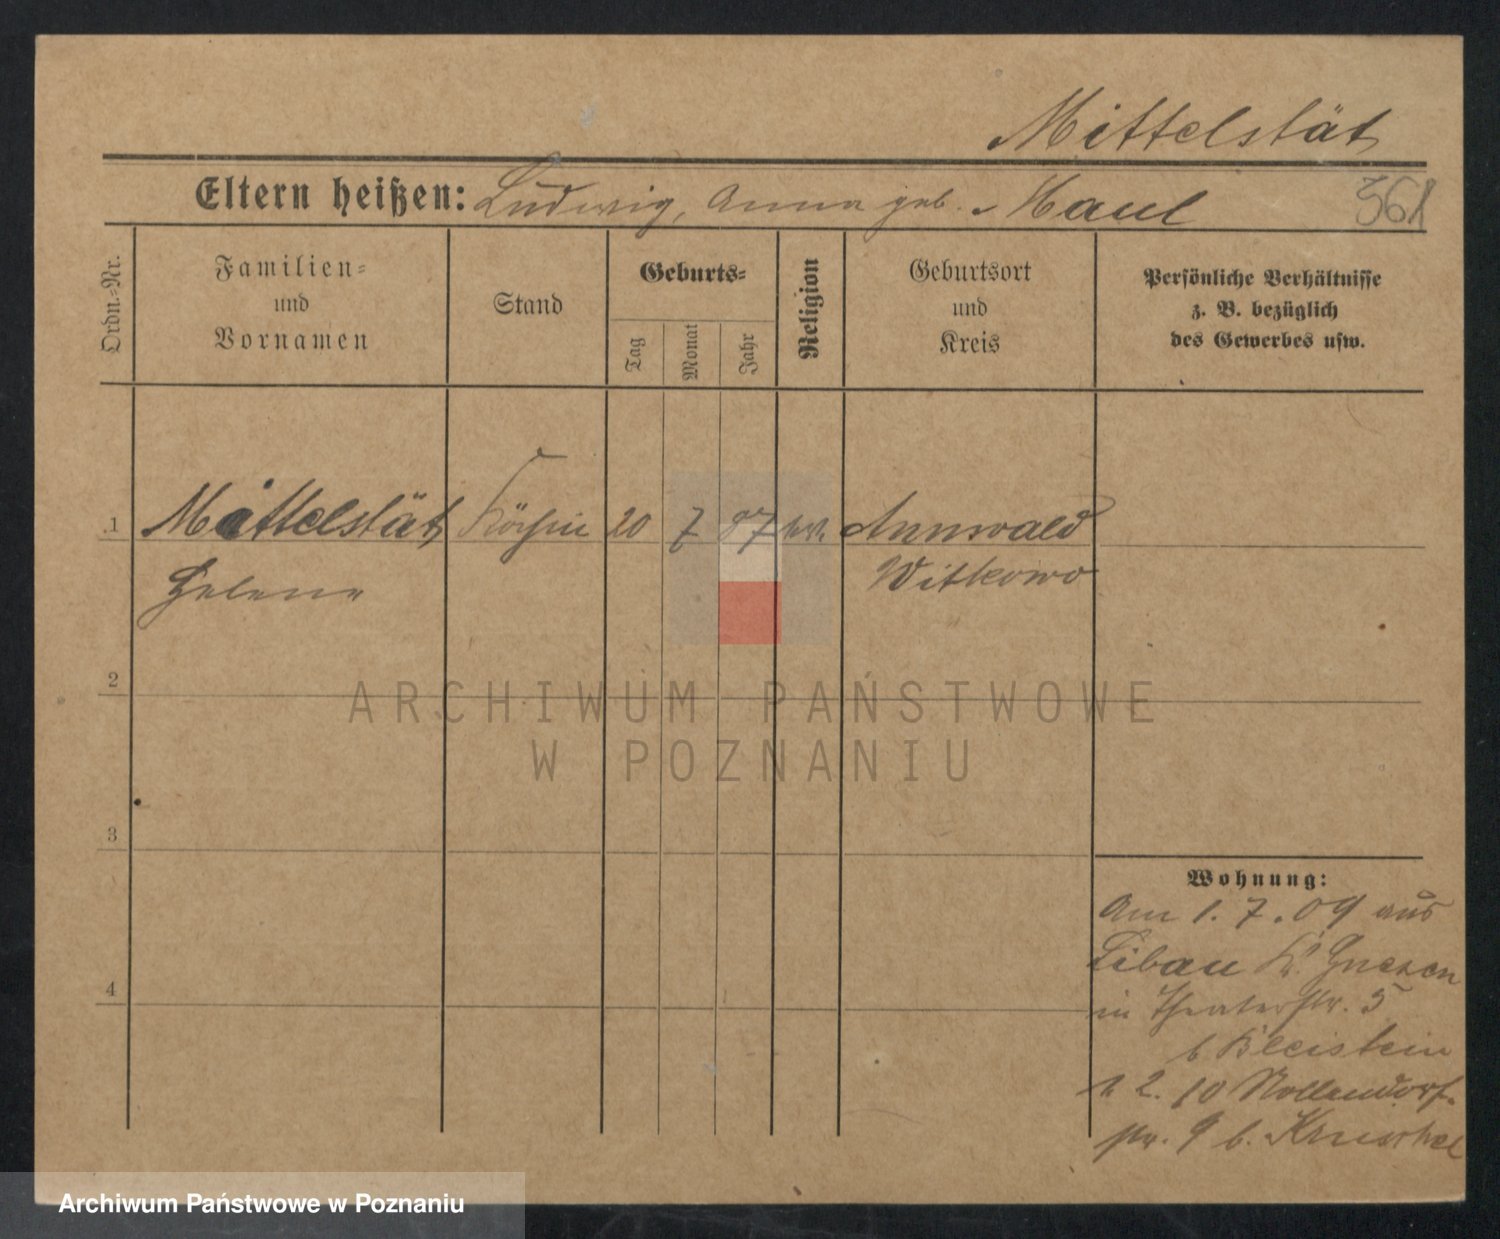 Mittelstät
Eltern heißen: Ludwig, Anna geb. Maul 361
Ordn.-Nr.
Familien-
und
Vornamen
Stand
Geburts-
Tag
Monat
Jahr
Religion
Geburtsort
und
Kreis
Persönliche Verhältnisse
z. B. bezüglich
des Gewerbes usw.
1 Mittelstät Köchin 20 7 87 Annwald
Helene Witkowo
2
3
4
ARCHIWUM PAŃSTWOWE
W POZNANIU
Wohnung:
Am 1. 7. 09 aus
Libau Kr. Gnesen
in Theaterstr. 5
b Bleistein
1 2. 10 Nollendorf-
str. 9 b.
Archiwum Państwowe w Poznaniu